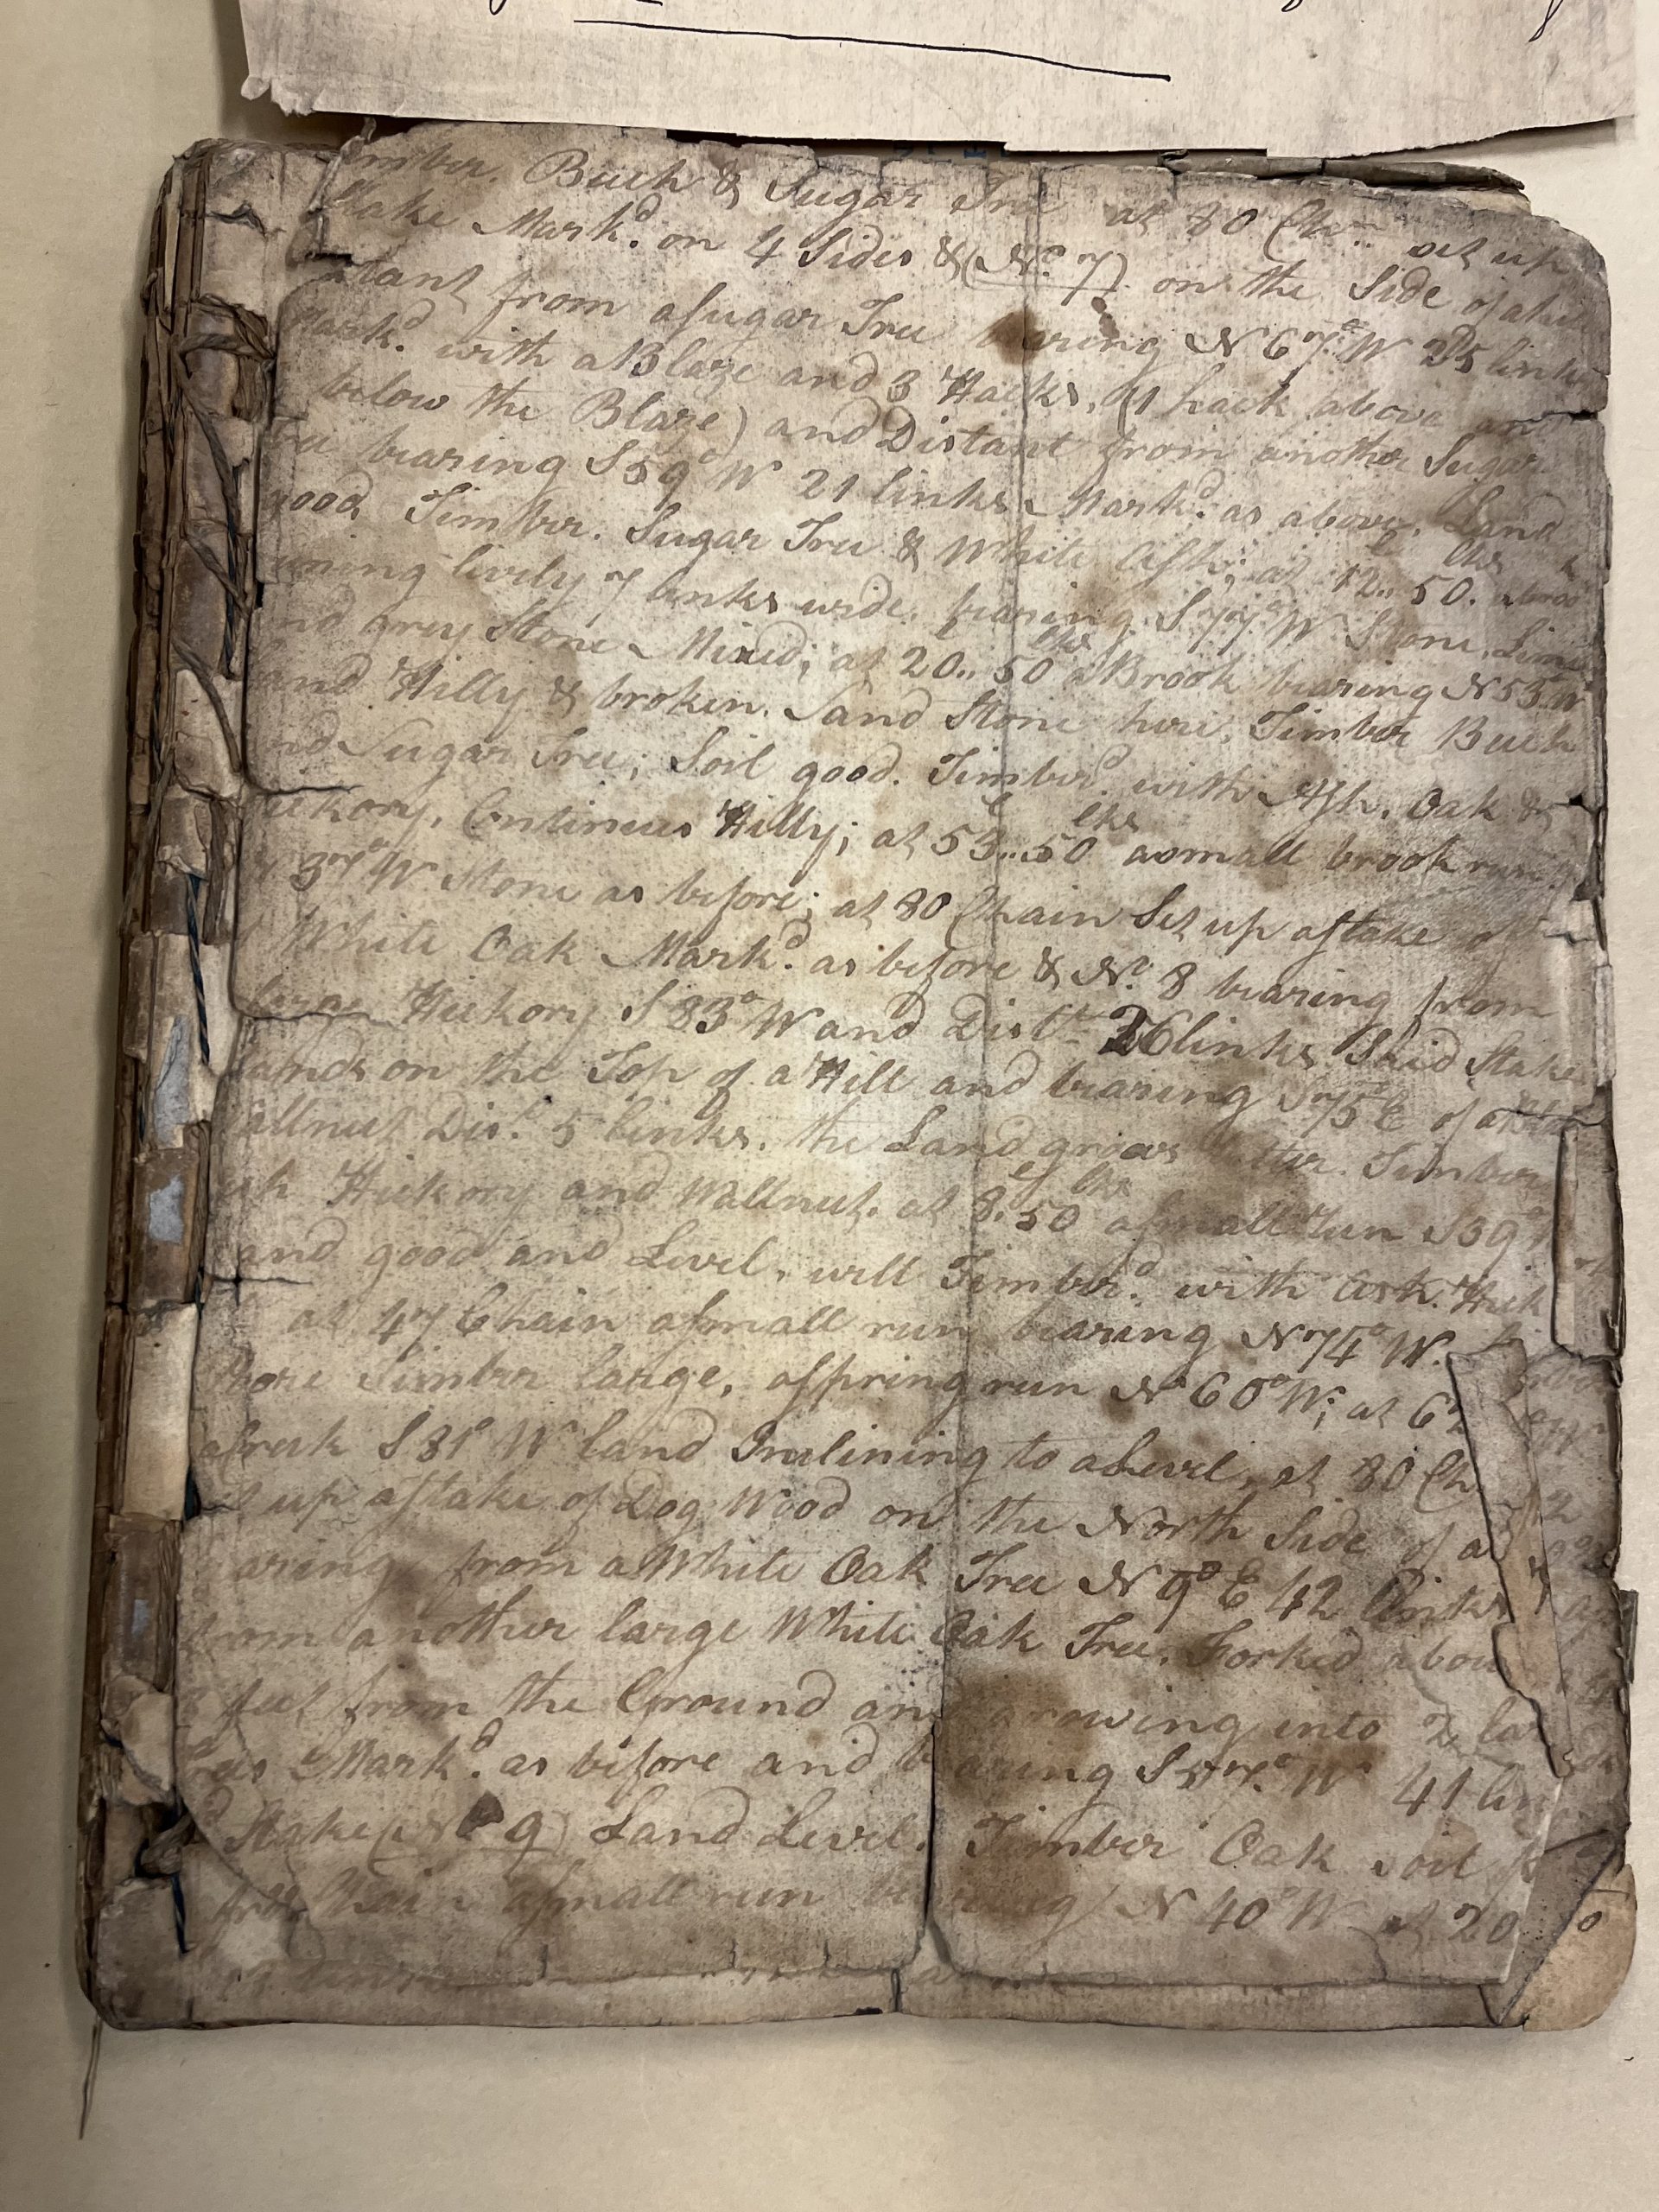 mber. Beech & Sugar Tree at 80 Chn set up
Stake Markd. on 4 Sides & (No. 7) on the Side of a hill
Distant from a sugar Tree bearing N 67° W 25 links
Markd. with a Blaze and 3 Hacks, (1 hack above an
below the Blaze) and Distant from another Sugar
bearing S 59° W 21 links Markd. as above. Land
good Timber. Sugar Tree & White Ash; at 12.. 50. lks a broo
uning lively 7 links wide. bearing S 77° W Stone, Lime
nd Grey Stone Mixed; at 20.. 50 lks a Brook bearing N 53° W
and Hilly & broken. Sand Stone here, Timber Beech
nd Sugar Tree; Soil good. Timberd. with Ash. Oak &
ickory, Continues Hilly; at 53 C.. 50 lks a small brook run
37° W Stone as before; at 80 Chain Set up a stake of
White Oak Markd. as before & No. 8 bearing from
large Hickory S 33° W and Distt. 26 links Said Stake
ands on the Top of a Hill and bearing S 75° E of a
allnut Dist. 5 links. the Land grows better. Timber
Hickory and Wallnut. at 8. 50 lks a small run S 39°
and good and Level, well Timberd. with Ash. Hick
at 47 Chain a small run bearing N 74° W.
more Timber large, a spring run N 60° W; at 6
a Creek S 31° W land Inclining to a Level, at 80 Ch
up a stake of Dog Wood on the North Side of a
aring from a White Oak Tree N 9° E 42 links
from another large White Oak Tree. Forked abou
feet from the Ground and growing into 2 lar
ees Markd. as before and bearing S 57° W 41 lin
Stake (No 9) Land Level. Timber Oak Soil
Chain a small run bearing N 40° W at 20